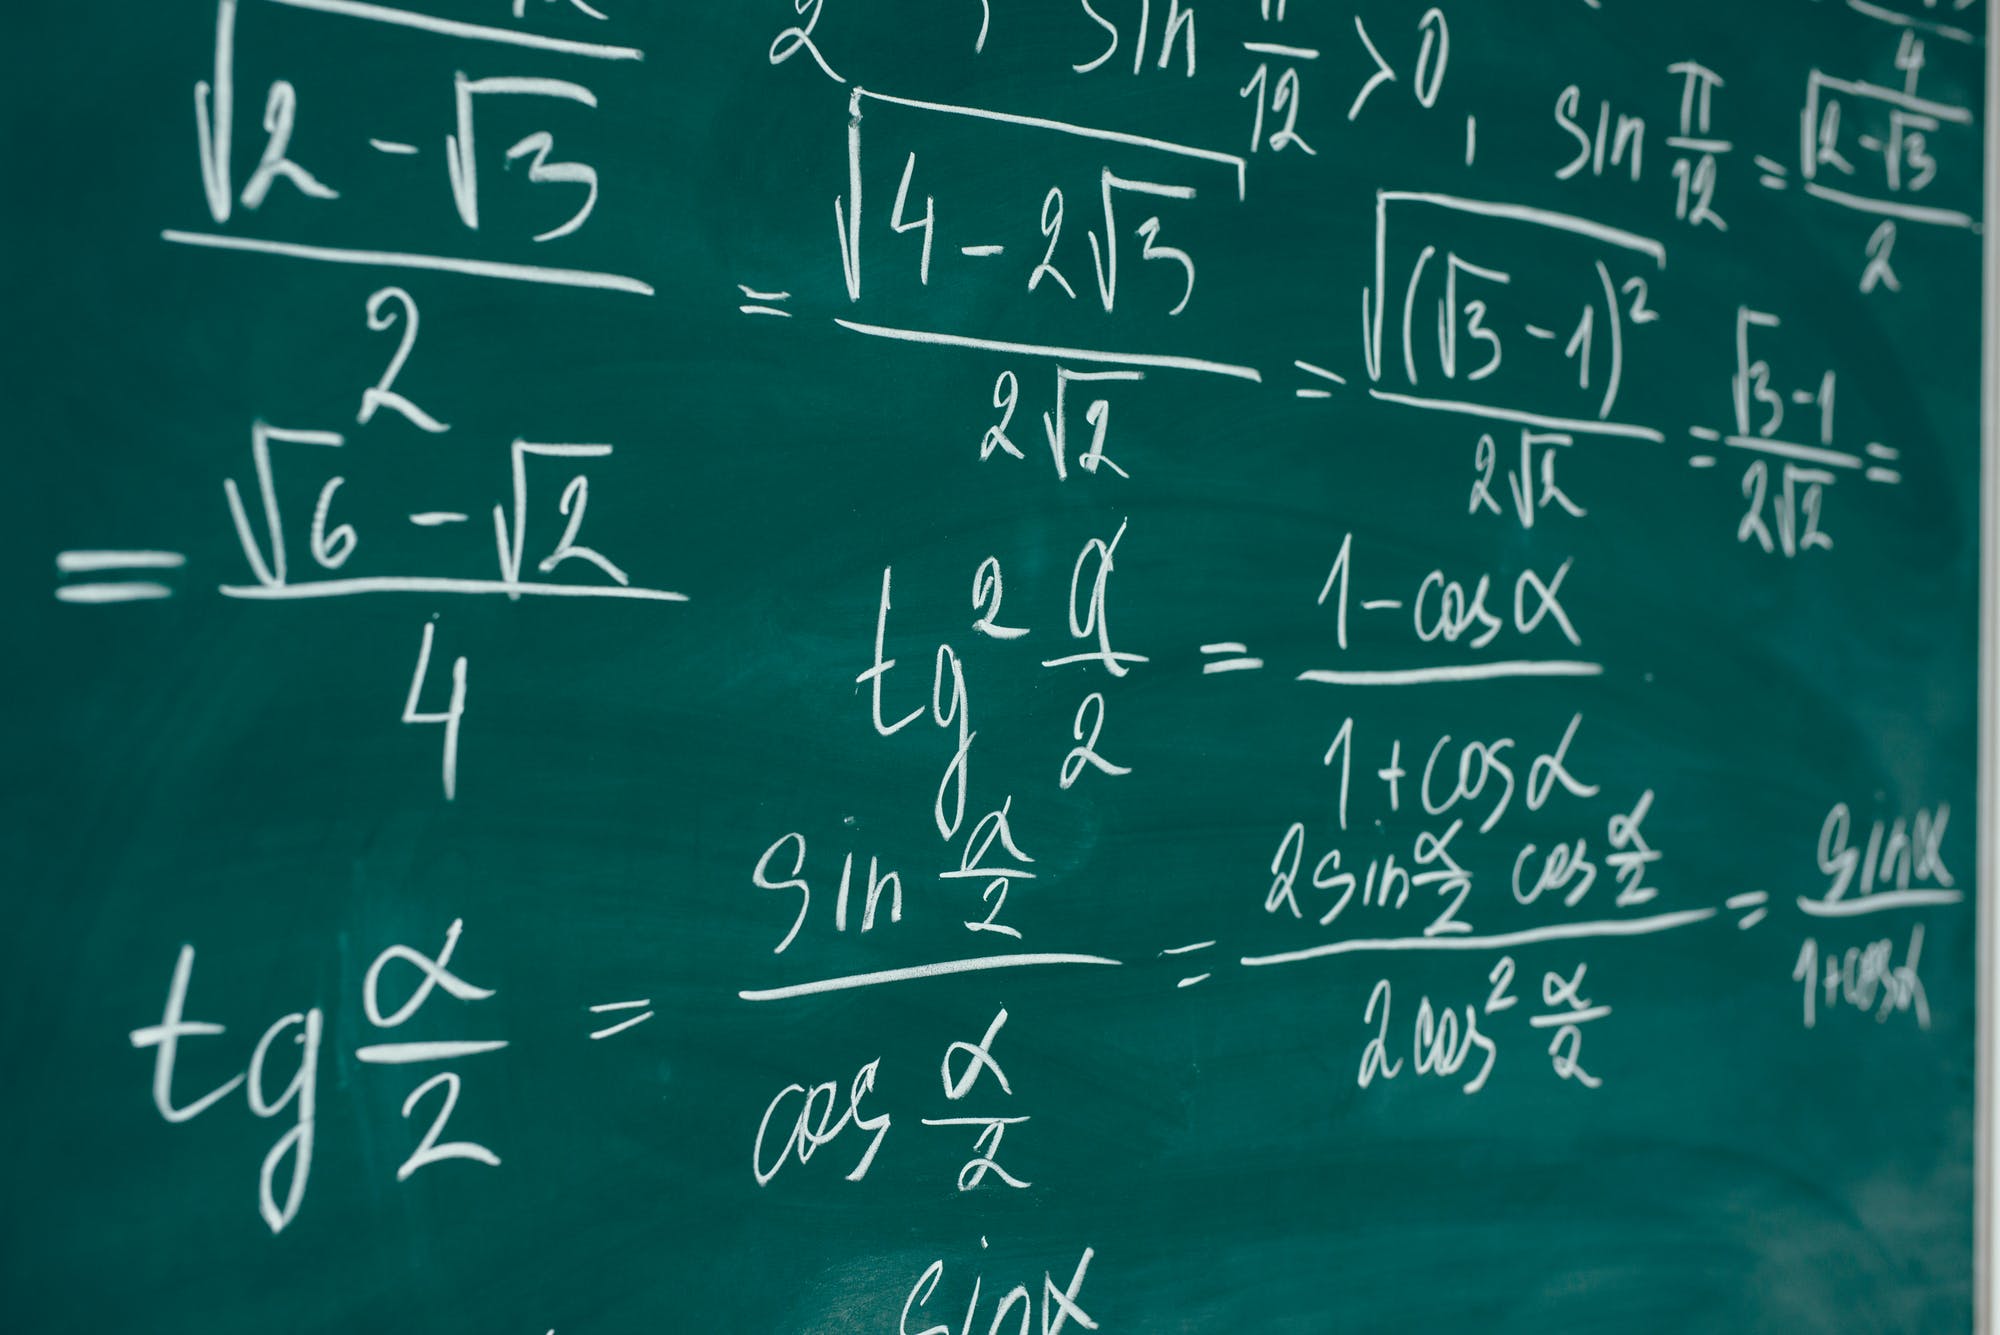 sin π/12 > 0, sin π/12 = √(2 - √3)/2
√(2 - √3)/2 = √(4 - 2√3)/(2√2) = √((√3 - 1)²)/(2√2) = (√3 - 1)/(2√2) =
= (√6 - √2)/4
tg² α/2 = (1 - cos α)/(1 + cos α)
tg α/2 = (sin α/2)/(cos α/2) = (2 sin α/2 cos α/2)/(2 cos² α/2) = sin α/(1 + cos α)
sin α